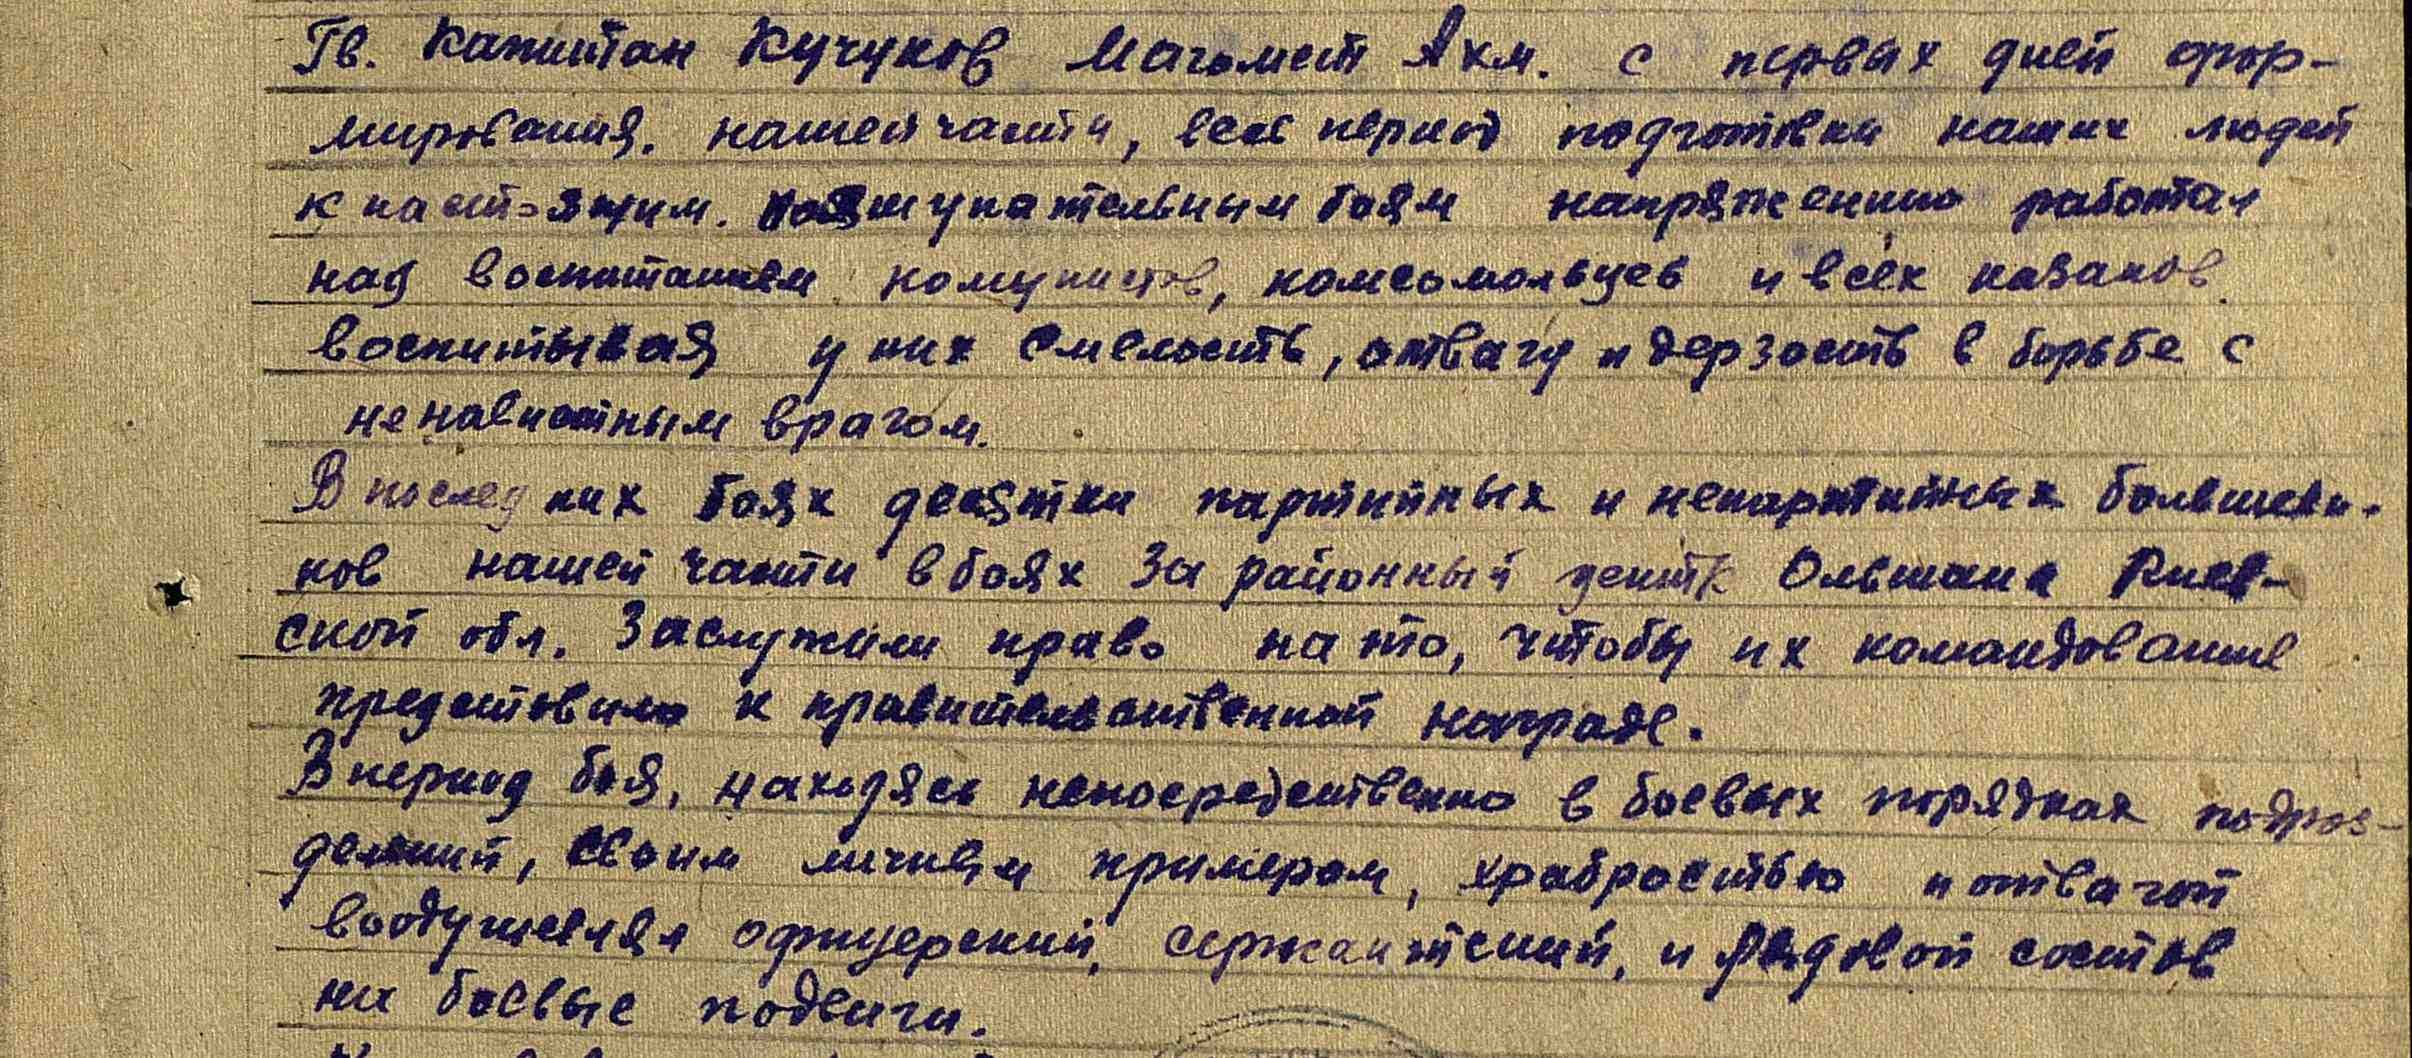 Гв. Капитан Кучуков Магомет Ахм. с первых дней фор-
мирования. нашей части, весь период подготовки наших людей
к настоящим. наступательным боям напряженно работал
над воспитанием комунистов, комсомольцев и всех казаков
воспитывая у них смелость, отвагу и дерзость в борьбе с
ненавистным врагом.
В последних боях десятки партийных и непартийных большеви-
ков нашей части в боях за районный центр Ольшана Киев-
ской обл. Заслужили право на то, чтобы их командование
предстовило к правительственной награде.
В период боя, находясь непосредственно в боевых порядках подраз-
делений, своим личным примером, храбростью и отвагой
воодушевлял офицерский, сержантский, и рядовой состов
на боевые подвиги.